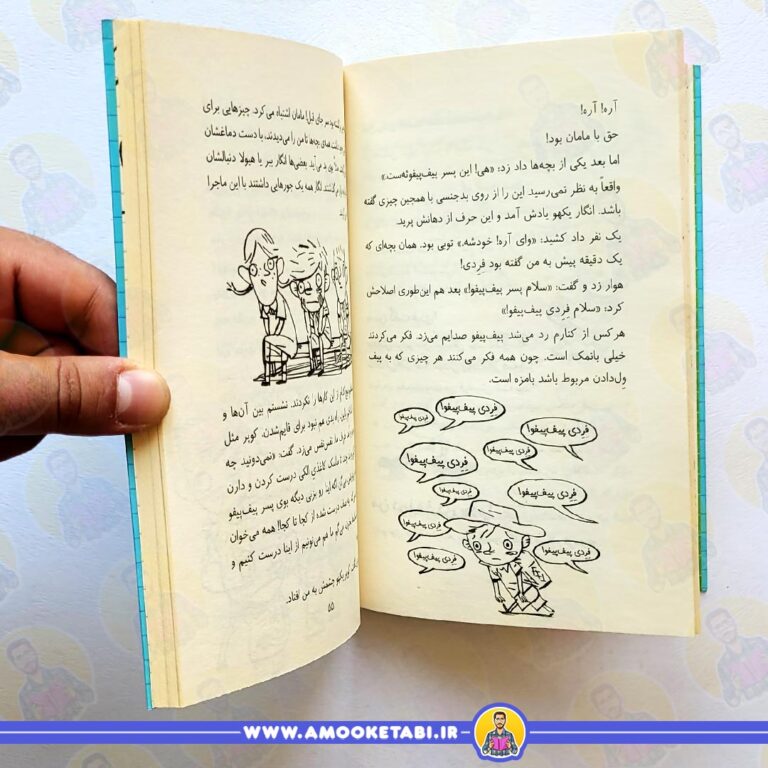 آره! آره!
حق با مامان بود!
اما بعد یکی از بچه‌ها داد زد: «هی! این پسر پیف‌پیفوئه‌ست.»
واقعاً به نظر نمی‌رسید این را از روی بدجنسی یا همچین چیزی گفته
باشد. انگار یکهو یادش آمد و این حرف از دهانش پرید.
یک نفر داد کشید: «وای آره! خودشه.» توبی بود. همان بچه‌ای که
یک دقیقه پیش به من گفته بود فِرِدی!
هوار زد و گفت: «سلام پسر پیف‌پیفو!» بعد هم این‌طوری اصلاحش
کرد: «سلام فِرِدی پیف‌پیفو!»
هر کس از کنارم رد می‌شد پیف‌پیفو صدایم می‌زد. فکر می‌کردند
خیلی بانمک است. چون همه فکر می‌کنند هر چیزی که به پیف
وِل‌دادن مربوط باشد بامزه است.
فِرِدی پیف‌پیفو!
فِرِدی پیف‌پیفو!
فِرِدی پیف‌پیفو!
فِرِدی پیف‌پیفو!
فِرِدی پیف‌پیفو!
فِرِدی پیف‌پیفو!
فِرِدی پیف‌پیفو!
فِرِدی پیف‌پیفو!
فِرِدی پیف‌پیفو!
فِرِدی پیف‌پیفو!
سر جای قبل! مامان اشتباه می‌کرد. چیزهایی برای
بچه‌ها تا من را می‌دیدند، با دست دماغشان
بو می‌آید. بعضی‌ها انگار ببر یا هیولا دنبالشان
انگار همه یک جورهایی داشتند با این ماجرا
از این کارها را نکردند. نشستم بین آن‌ها و
هم نبود برای قایم‌شدن. کوپر مثل
نفس‌نفس می‌زد. گفت: «نمی‌دونید چه
ماسک کاغذی الکی درست کردن و دارن
اینه رو بزنی دیگه بوی پسر پیف‌پیفو
درست شده از کجا تا کجا! همه می‌خوان
ما هم می‌تونیم از اینا درست کنیم و
چشمش به من افتاد.
۵۵
WWW.AMOOKETABI.IR